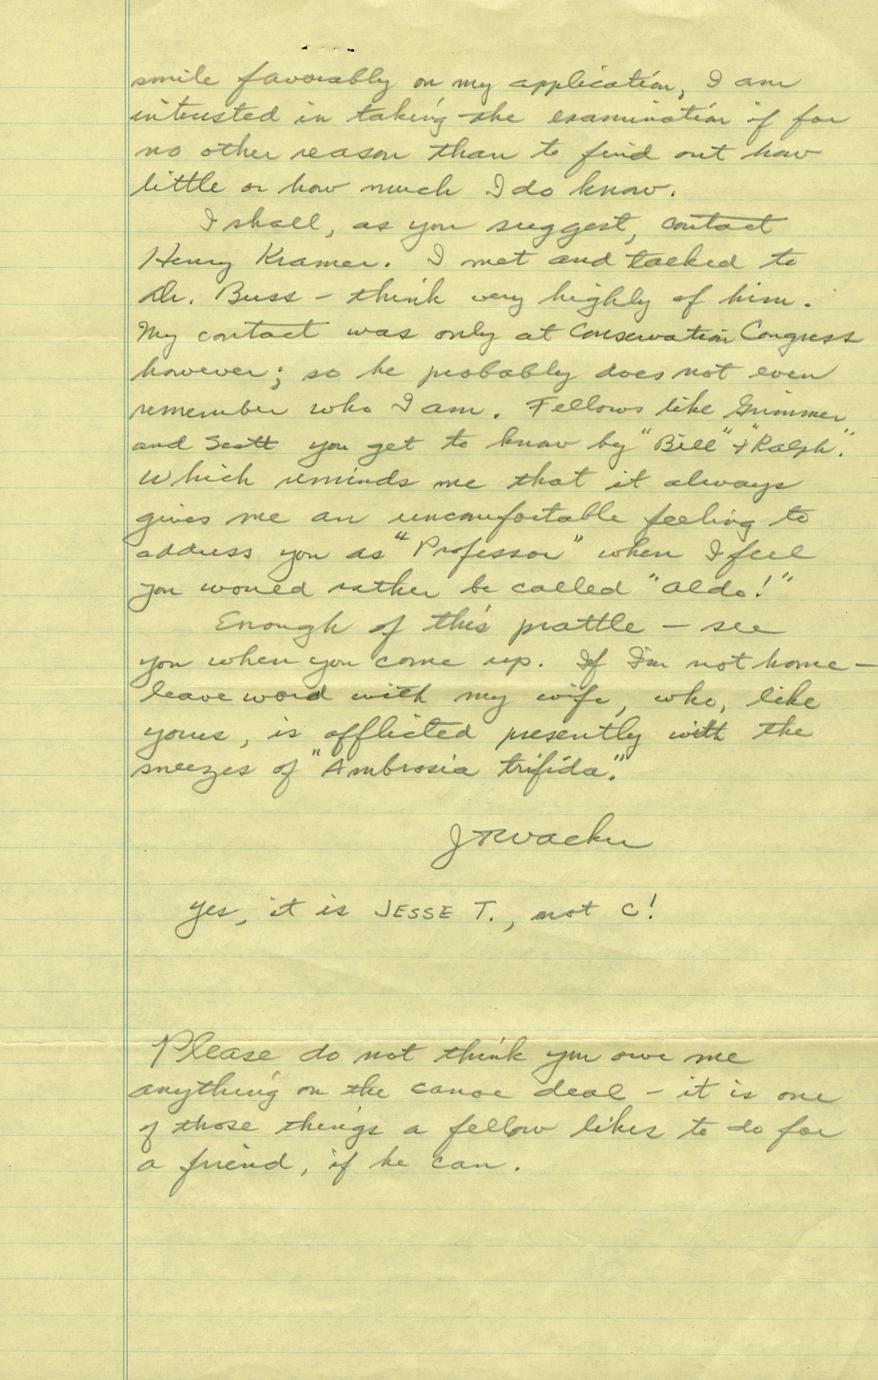 smile favorably on my application, I am
interested in taking the examination if for
no other reason than to find out how
little or how much I do know.
I shall, as you suggest, contact
Henry Kramer. I met and talked to
Dr. Buss - think very highly of him.
My contact was only at Conservation Congress
however; so he probably does not even
remember who I am. Fellows like Grimmer
and Scott you get to know by "Bill" + "Ralph".
Which reminds me that it always
gives me an uncomfortable feeling to
address you as "Professor" when I feel
you would rather be called "Aldo!"
Enough of this prattle - see
you when you come up. If I'm not home -
leave word with my wife, who, like
yours, is afflicted presently with the
sneezes of "Ambrosia trifida."
JTWacker
Yes, it is JESSE T., not C!
Please do not think you owe me
anything on the canoe deal - it is one
of those things a fellow likes to do for
a friend, if he can.